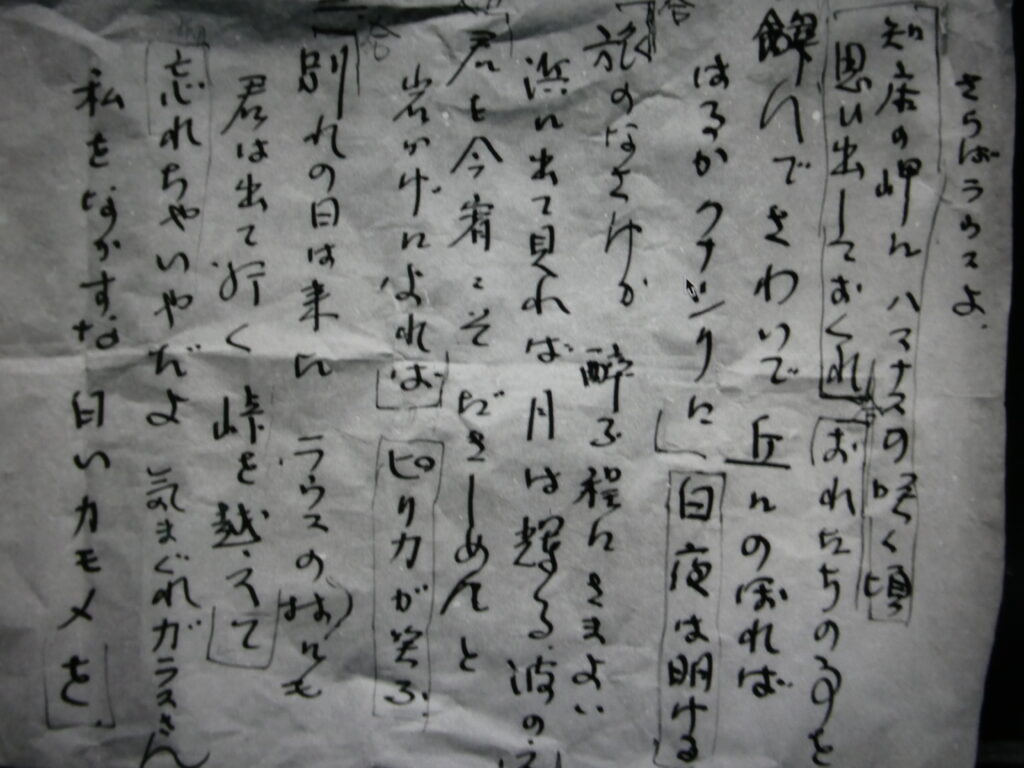 さらばラウスよ
知床の岬に ハマナスの咲く頃
思い出しておくれ おれたちの事を
飲んでさわいで 丘にのぼれば
はるかクナシリに 白夜は明ける
旅のなさけか 酔う程にさまよい
浜に出て見れば 月は輝る 波の上
君を今宵こそ だきしめんと
岩かげによれば ピリカが笑う
別れの日は来た ラウスの村にも
君は出て行く 峠を越えて
忘れちゃいやだよ 気まぐれガラスさん
私をなかすな 白いカモメを